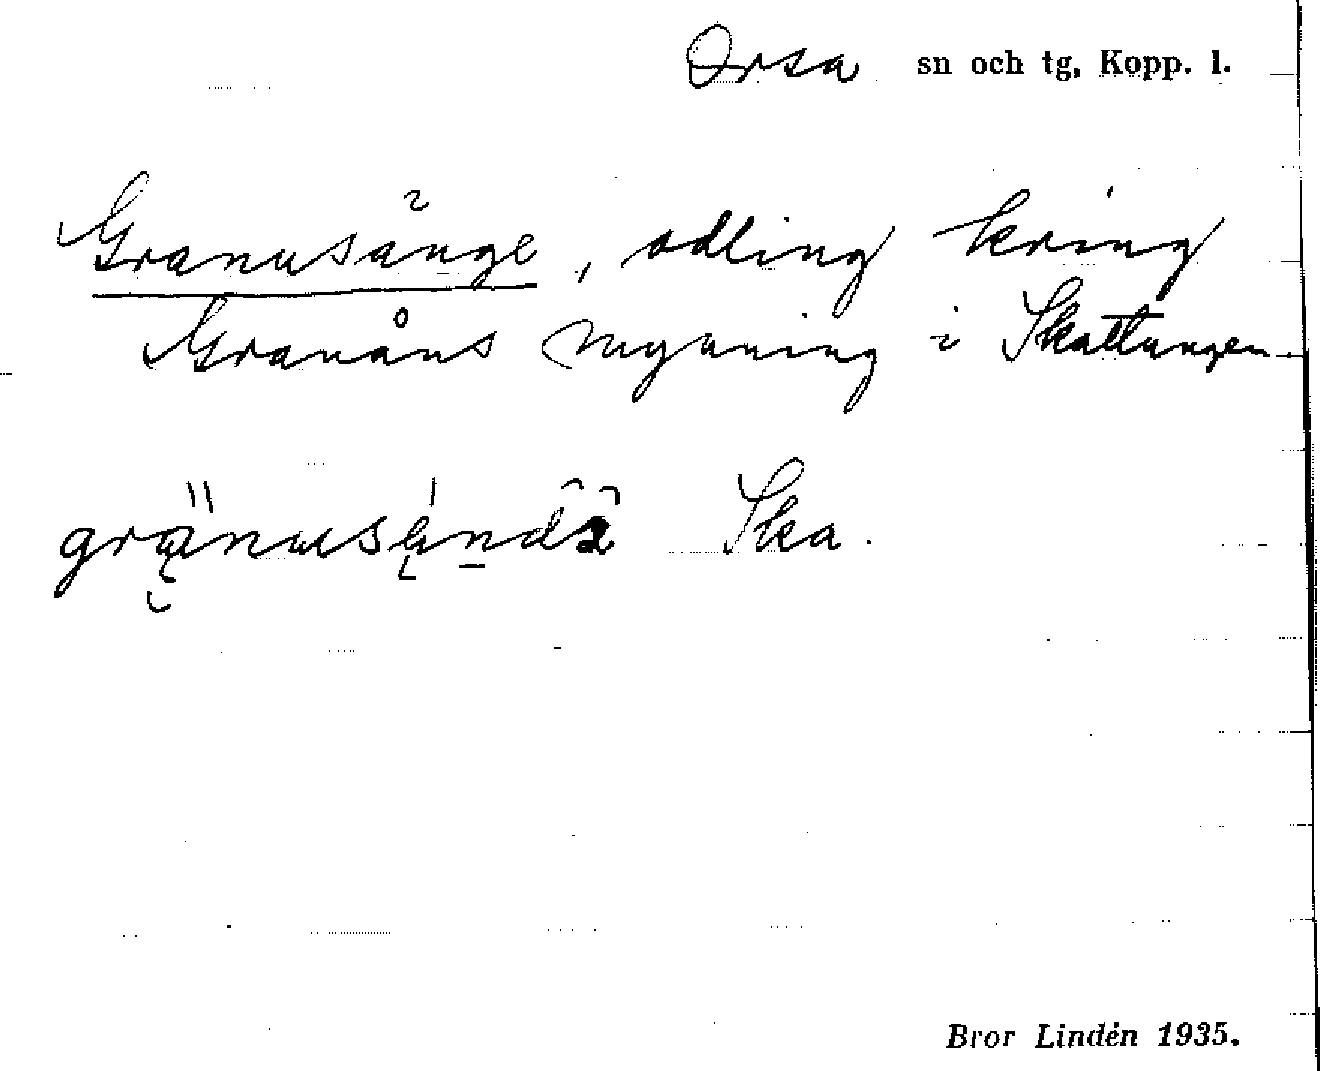 Orsa sn och tg, Kopp. l.
Granusänge, odling kring
Granåns mynning i Skattungen.
Ska.
Bror Lindén 1935.